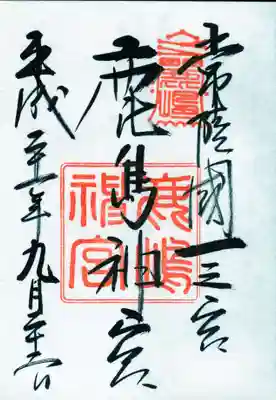 常陸國一之宮
鹿島神宮
鹿嶋
神宮
平成二十一年九月二十日